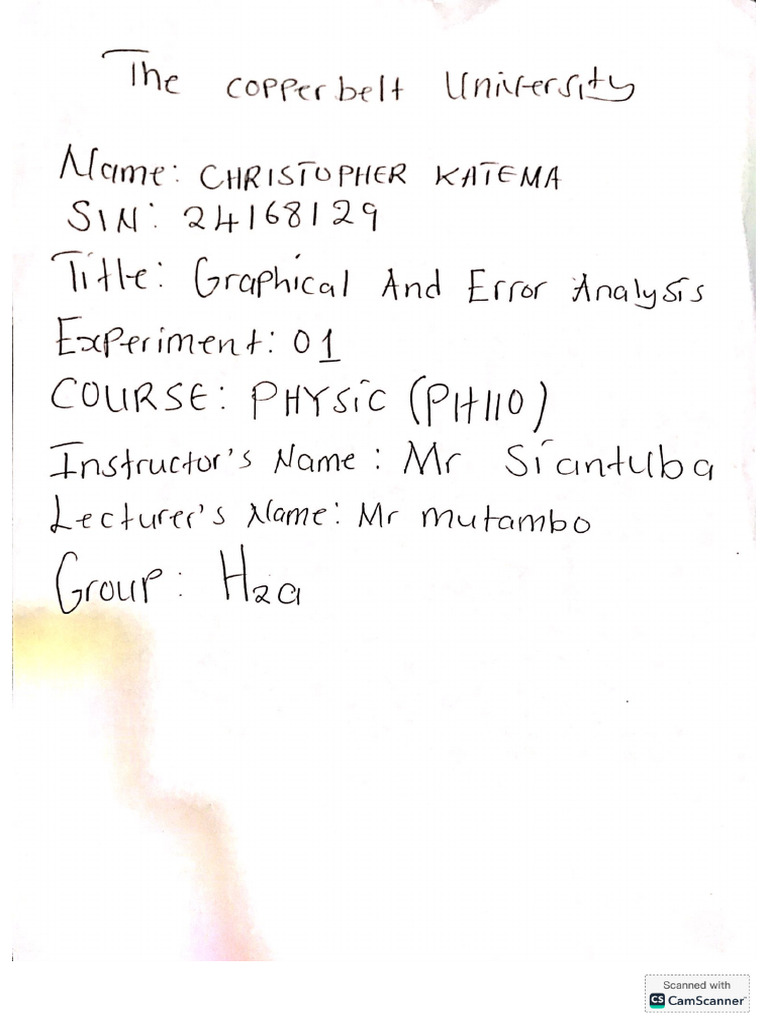 The Copperbelt University
Name: CHRISTOPHER KATEMA
SIN: 24168129
Title: Graphical And Error Analysis
Experiment: 01
COURSE: PHYSIC (PH110)
Instructor's Name: Mr Siantuba
Lecturer's Name: Mr mutambo
Group: H2a
Scanned with
CS CamScanner